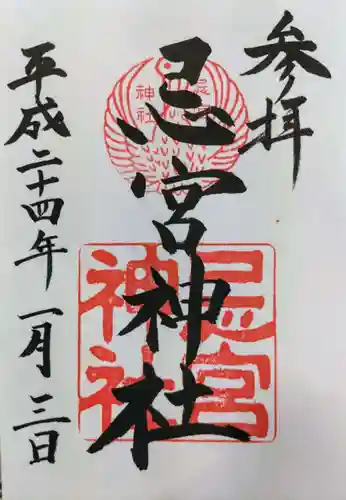 参拝
忌宮神社
平成二十四年一月三日
忌宮
神社
忌宮
神社